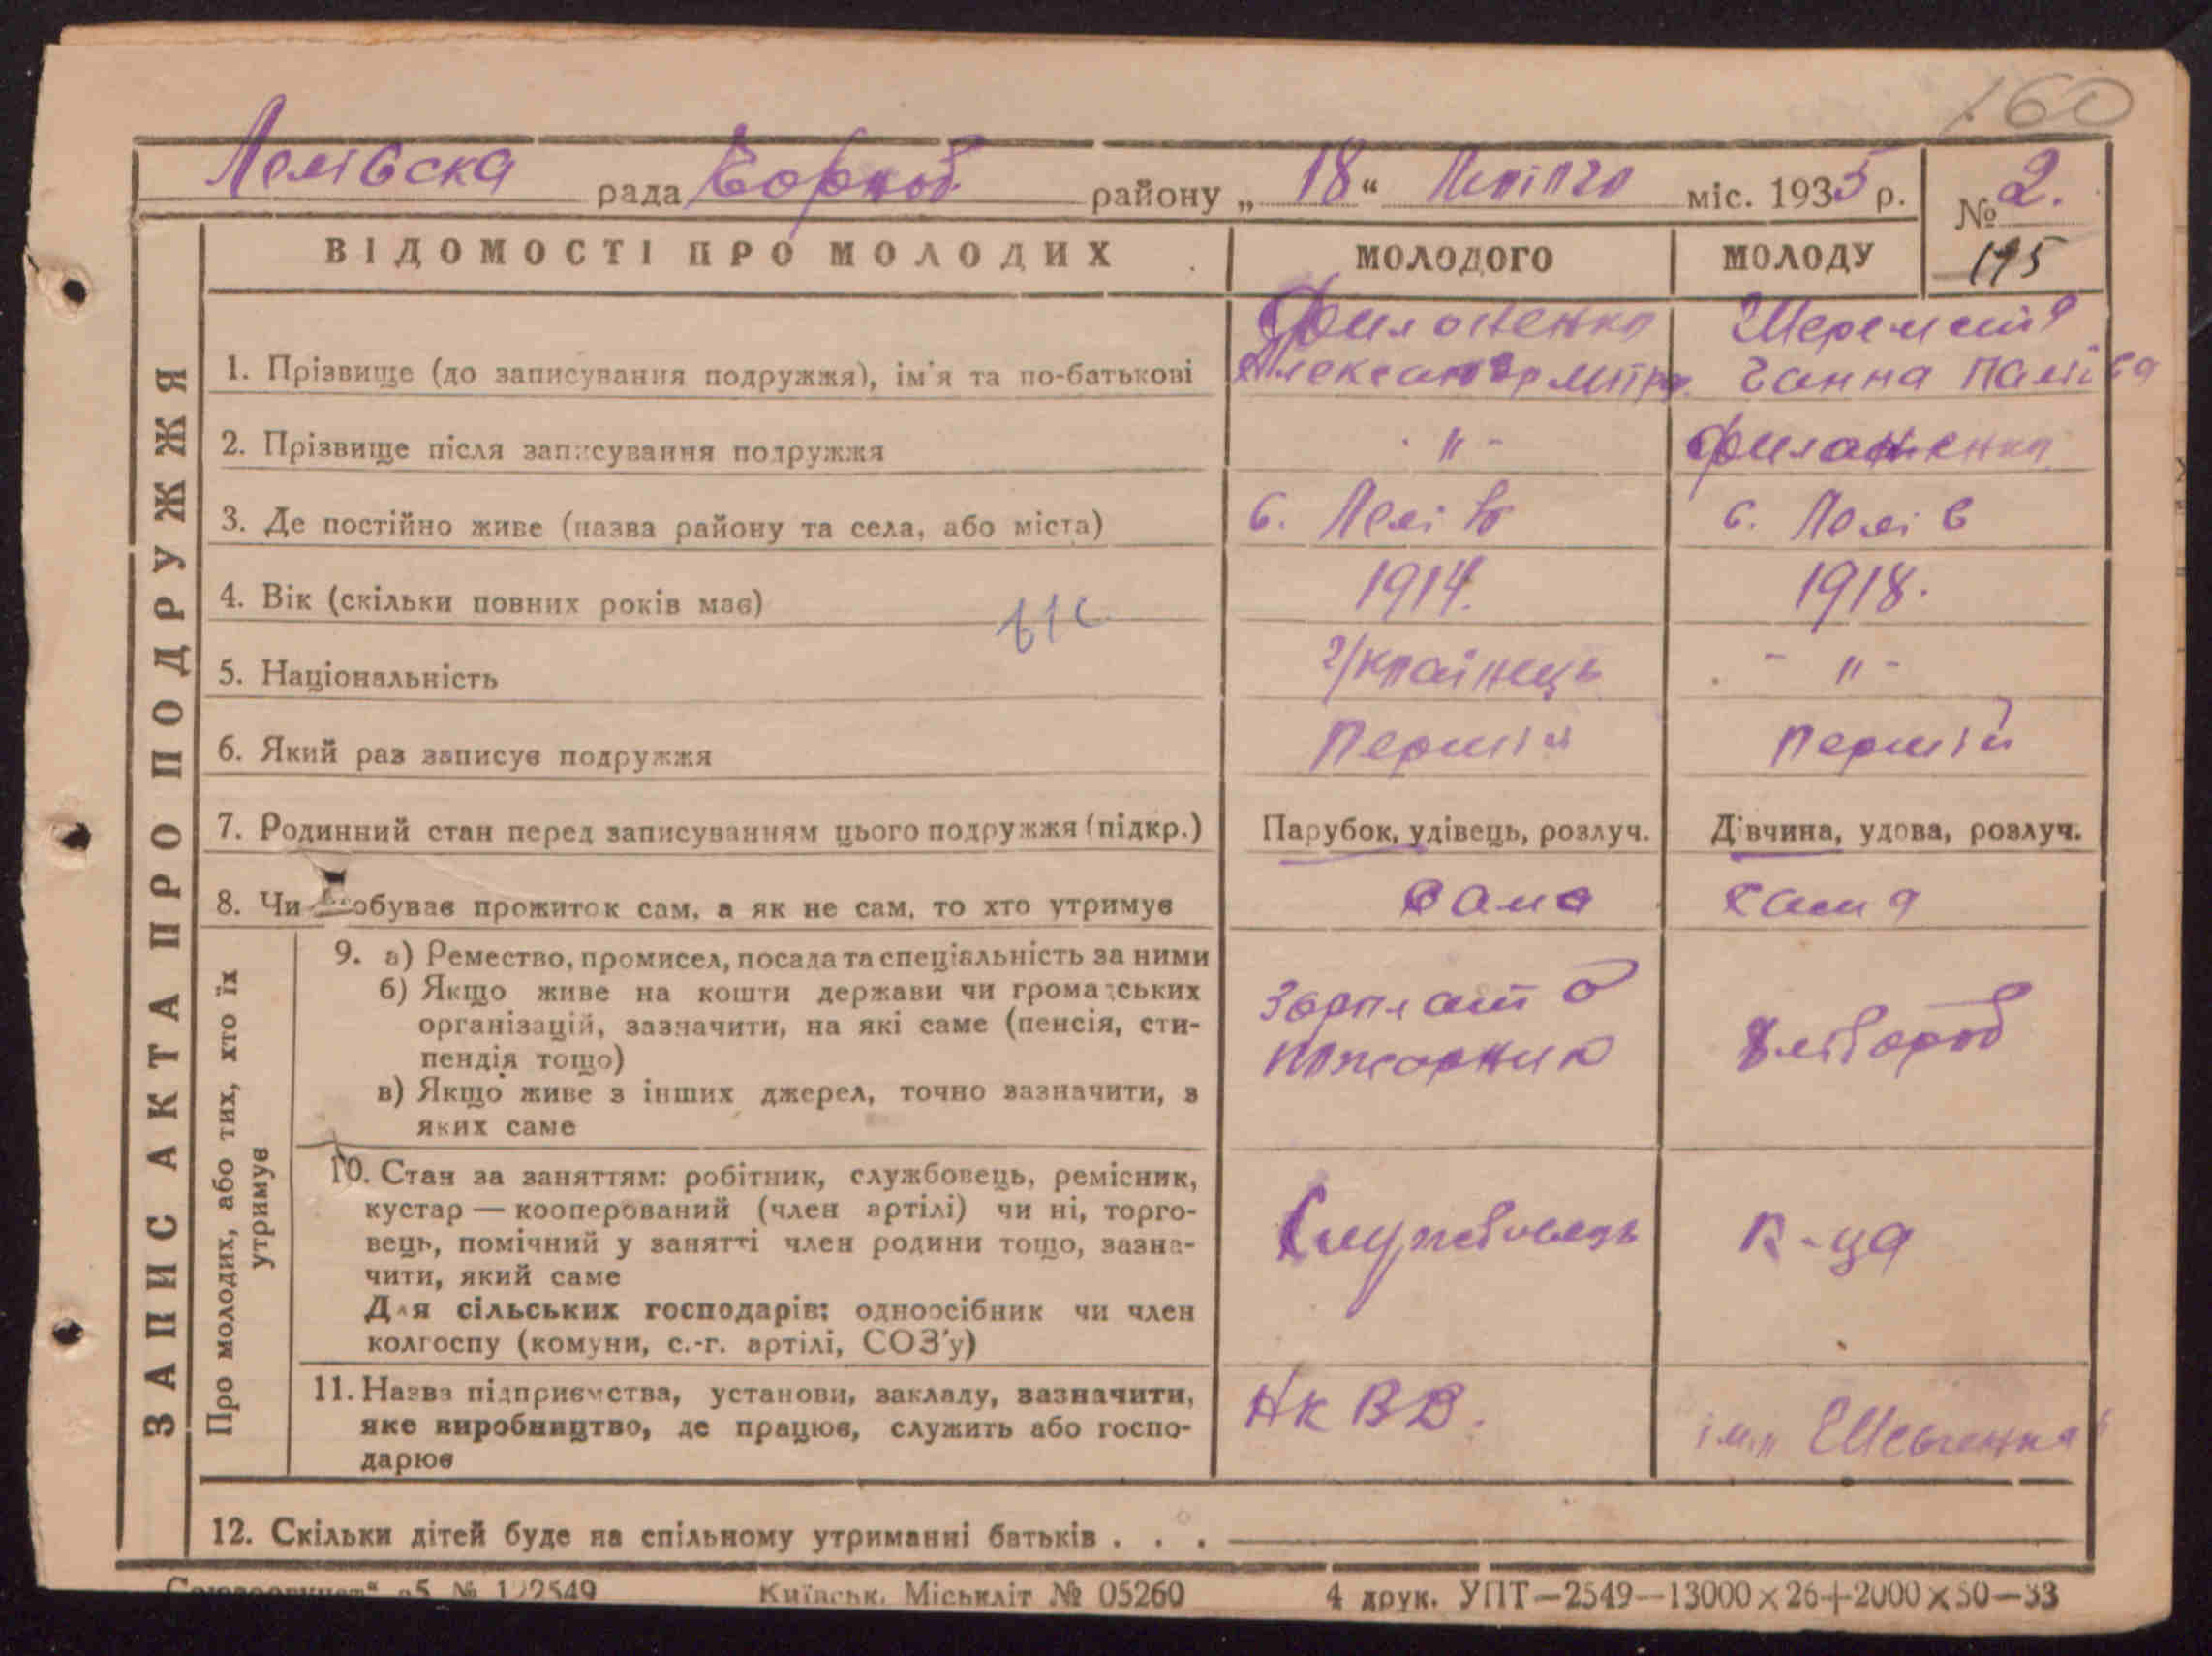 160
Лелівска рада Чорноб району „ 18 “ міс. 1935 р. № 2.
195
ЗАПИС АКТА ПРО ПОДРУЖЖЯ
ВІДОМОСТІ ПРО МОЛОДИХ МОЛОДОГО МОЛОДУ
Филоненко Шеремета
1. Прізвище (до записування подружжя), ім'я та по-батькові Александр Митр. Ганна
2. Прізвище після записування подружжя - " - Филоненко
3. Де постійно живе (назва району та села, або міста) с. Лелів с. Лелів
4. Вік (скільки повних років має) 1914. 1918.
5. Національність Українець - " -
6. Який раз записує подружжя Перший Перший
7. Родинний стан перед записуванням цього подружжя (підкр.) Парубок, удівець, розлуч. Дівчина, удова, розлуч.
8. Чи здобував прожиток сам, а як не сам, то хто утримує сама
Про молодих, або тих, хто їх утримує
9. а) Ремество, промисел, посада та спеціальність за ними
б) Якщо живе на кошти держави чи громадських
організацій, зазначити, на які саме (пенсія, сти-
пендія тощо)
в) Якщо живе з інших джерел, точно зазначити, з
яких саме
Зарплата
пожарник
Хлібороб
10. Стан за заняттям: робітник, службовець, ремісник,
кустар — кооперований (член артілі) чи ні, торго-
вець, помічний у занятті член родини тощо, зазна-
чити, який саме
Для сільських господарів: одноосібник чи член
колгоспу (комуни, с.-г. артілі, СОЗ'у)
Службовець к-ця
11. Назва підприємства, установи, закладу, зазначити,
яке виробництво, де працює, служить або госпо-
дарює
НКВД. ім. Шевченка
12. Скільки дітей буде на спільному утриманні батьків . . .
№ 122549 Київськ. Міськліт № 05260 4 друк. УПТ—2549—13000×26+2000×50—33